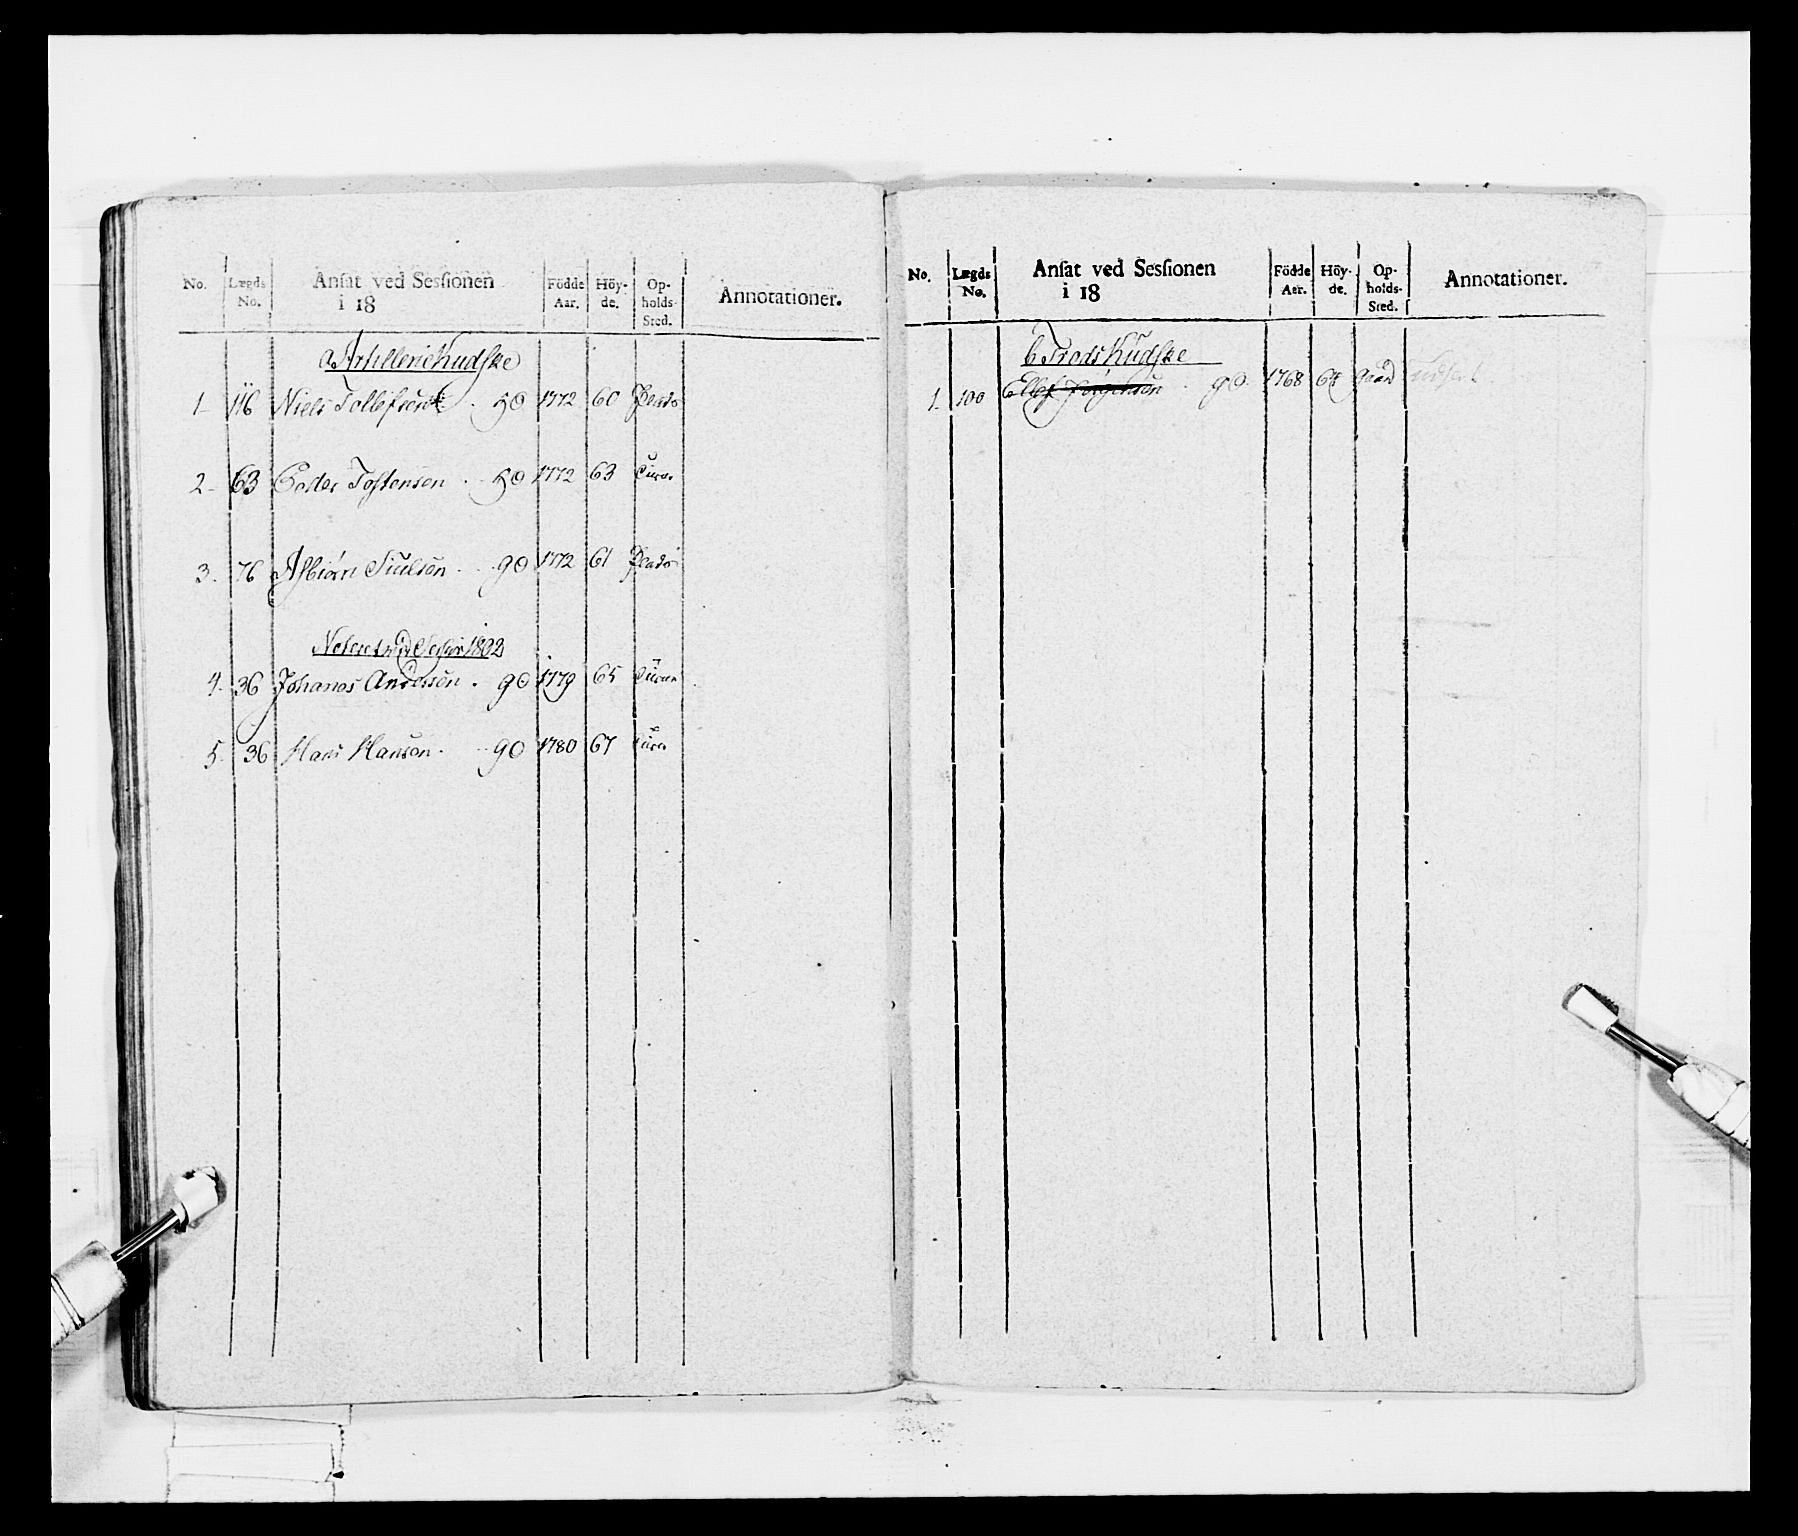 No. Lægds No. Ansat ved Sessionen i 18 Födde Aar. Höyde. Opholds Sted. Annotationer.
a Artillerie Kudske
1 116 Niels Tollefsen 50 1772 60
2 63 Tostensen 50 1772 63
3 76 Asbiørn 90 1772 61
1802
4 36 Johanes Andersen 90 1779 65
5 36 Hans Hansen 90 1780 67
No. Lægds No. Ansat ved Sessionen i 18 Födde Aar. Höyde. Opholds Sted. Annotationer.
b Trods Kudske
1 100 Ellef Jørgensen 90 1768 64 Gaard